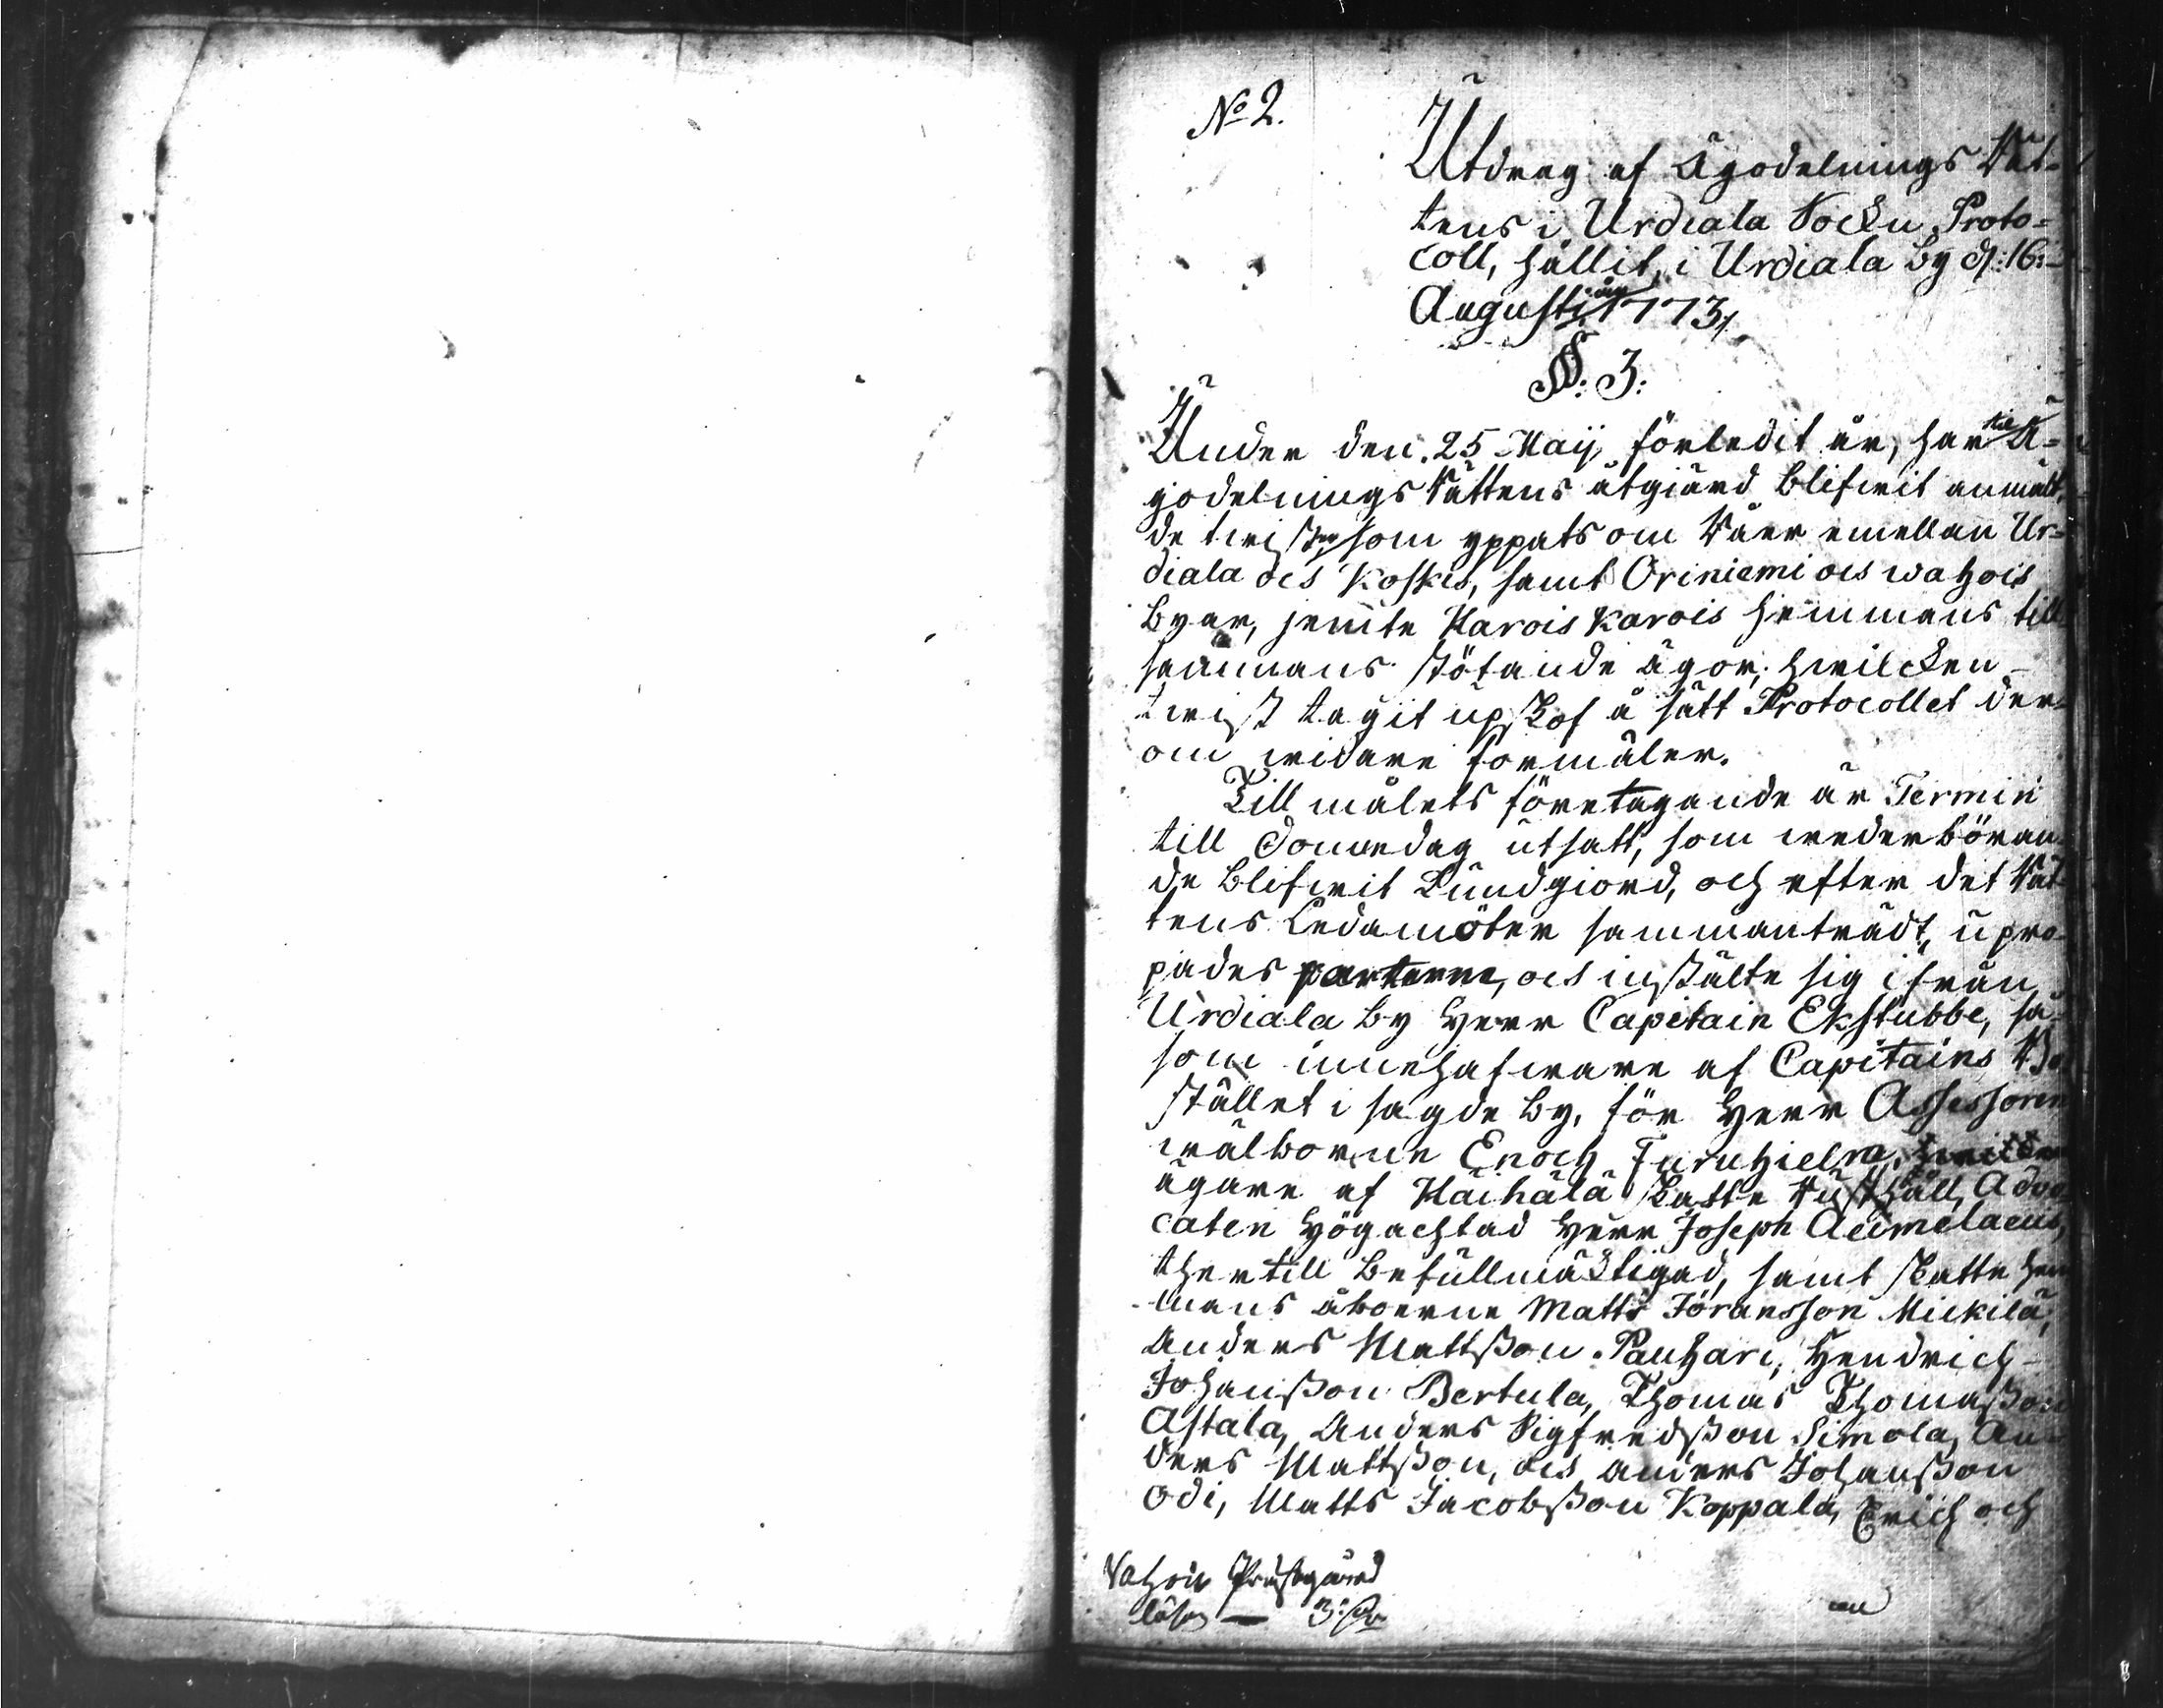 No 2.
Utdrag af Ägodelnings Rät-
tens i Urdiala Sockn Proto=
coll, hållit, i Urdiala by d: 16:
Augusti år 1773,
§: 3:
Under den 25 Maij förledit år, har til Ä=
godelnings Rättens åtgiärd blifwit anmält,
de twister som yppats om Råer emellan Ur=
diala och Koskis, samt Oriniemi och wahois
byar, jemte Harois Karois hemmans till
hemmans stötande ägor, hwilcken
twist tagit upskof å sätt Protocollet der=
om widare förmäler.
Till målets företagande är Termin
till Domedag utsatt, som wederböran
de blifwit kundgiord, och efter det Rät
tens Ledamöter sammanträdt, upro
pades parterne, och instälte sig ifrån
Urdiala by Herr Capitain Ekstubbe, så
som innehafware af Capitains Bo
stället i sagde by, för Herr Assessoren
wälborne Enoch Furuhielm,
ägare af Häihälä Skatte Rusthåll, Advo
caten Högachtad Herr Joseph Aeimelaeus,
ther till befullmäktigad, samt Skatte Hem
mans åboerne Matts Jöransson Mickilä,
Anders Mattsson Pauhari, Hendrich
Johansson Bertula, Thomas Thomasson
Astala, Anders Sigfredsson Simola, An
ders Mattsson, och Anders Johansson
Odi, Matts Jacobsson Koppala, Erich och
Vahois Prästgård
lösn — 3: